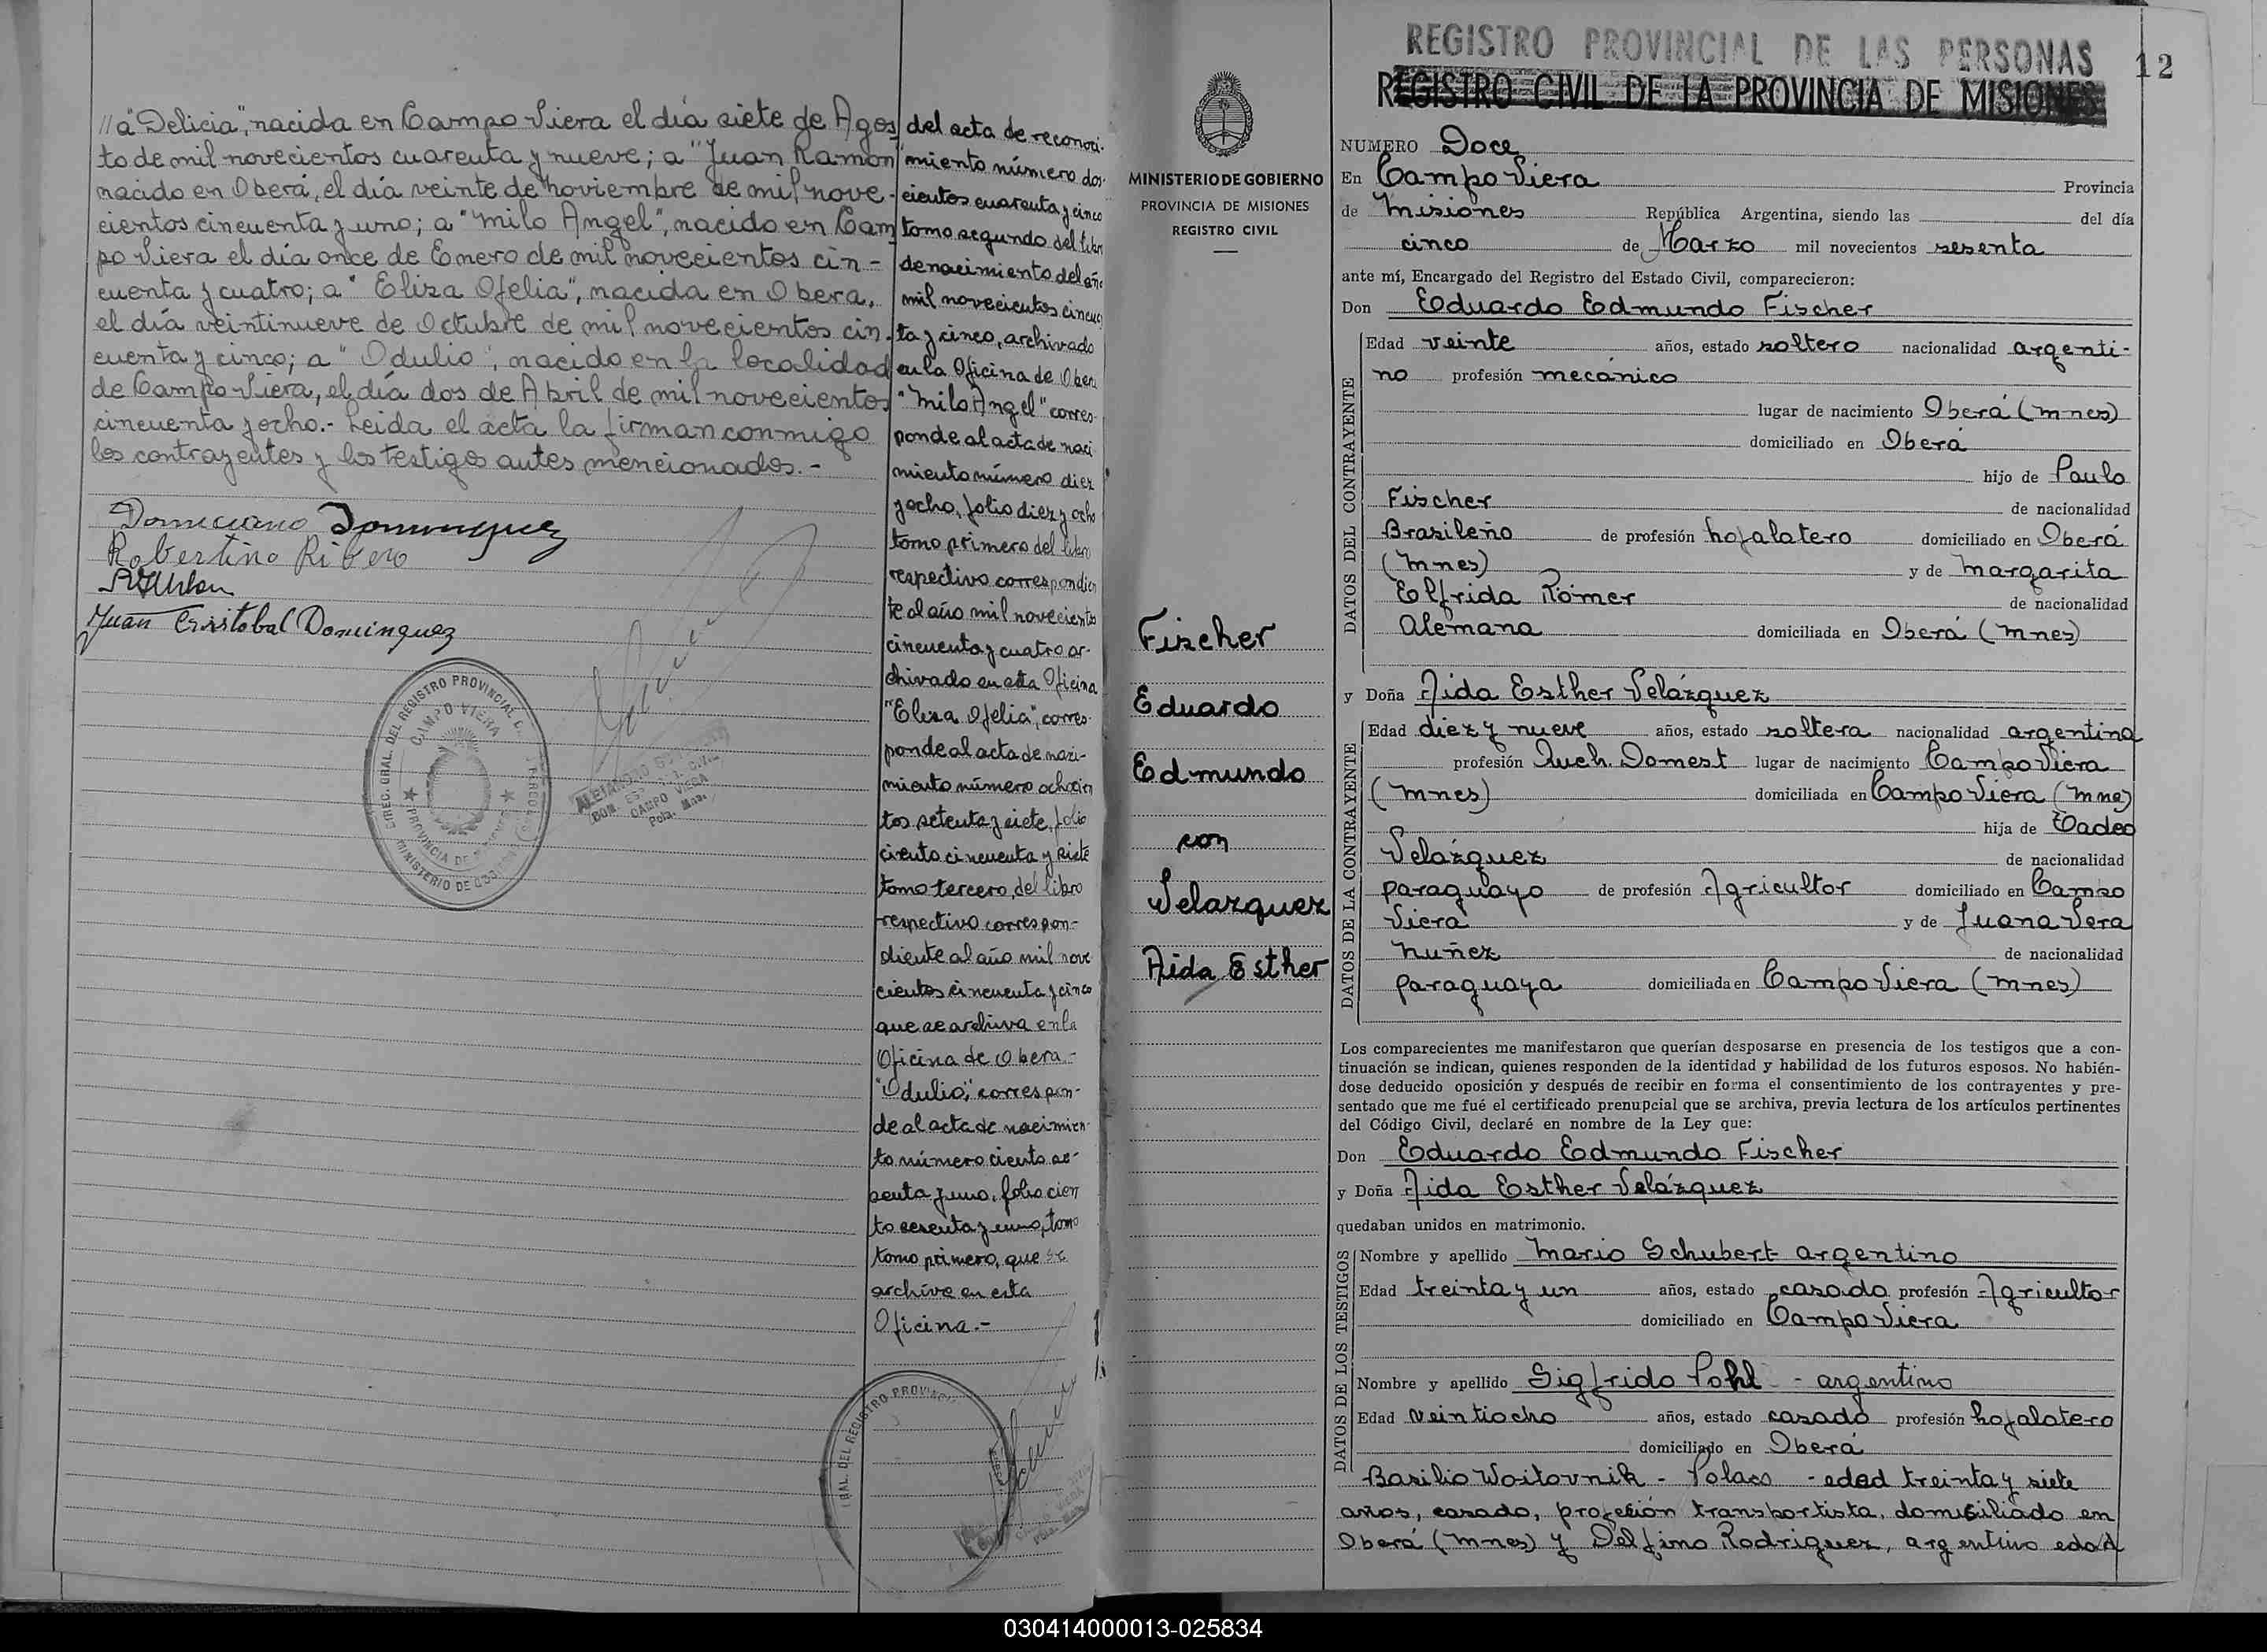 //a "Delicia", nacida en Campo Viera el día siete de Agos
to de mil novecientos cuarenta y nueve; a "Juan Ramon
nacido en Oberá, el día veinte de noviembre de mil nove-
cientos cincuenta y uno; a "Milo Angel", nacido en Cam
po Viera el día once de Enero de mil novecientos cin-
cuenta y cuatro; a "Eliza Ofelia", nacida en Obera,
el día veintinueve de Octubre de mil novecientos cin-
cuenta y cinco; a "Odulio", nacido en la localidad
de Campo Viera, el día dos de Abril de mil novecientos
cincuenta y ocho.- Leida el acta la firman conmigo
los contrayentes y los testigos antes mencionados.-
Domiciano Dominguez
Robertino Ribero
Juan Cristobal Dominguez
DIREC. GRAL. DEL REGISTRO PROVINCIAL
CAMPO VIERA
PROVINCIA DE
MINISTERIO DE
CAMPO VIERA
Pcia. Mns.
del acta de reconoci-
miento número dos-
cientos cuarenta y cinco
tomo segundo del libro
de nacimiento del año
mil novecientos cincuen
ta y cinco, archivado
en la Oficina de Obera
"Milo Angel" corres-
ponde al acta de naci
miento número diez
y ocho, folio diez y ocho
tomo primero del libro
respectivo correspondien
te al año mil novecientos
cincuenta y cuatro ar-
chivado en esta Oficina
"Eliza Ofelia", corres-
ponde al acta de naci-
miento número ochocien
tos setenta y siete, folio
ciento cincuenta y siete
tomo tercero, del libro
respectivo correspon-
diente al año mil nove
cientos cincuenta y cinco
que se archiva en la
Oficina de Obera.-
"Odulio", correspon-
de al acta de nacimien-
to número ciento se-
senta y uno, folio cien
to sesenta y uno, tomo
tomo primero, que se
archiva en esta
Oficina.-
GRAL. DEL REGISTRO PROVINCIAL
MINISTERIO DE GOBIERNO
PROVINCIA DE MISIONES
REGISTRO CIVIL
Fischer
Eduardo
Edmundo
con
Velazquez
Aida Esther
REGISTRO PROVINCIAL DE LAS PERSONAS
12
REGISTRO CIVIL DE LA PROVINCIA DE MISIONES
NUMERO Doce
En Campo Viera Provincia
de Misiones República Argentina, siendo las del día
cinco de Marzo mil novecientos sesenta
ante mí, Encargado del Registro del Estado Civil, comparecieron:
Don Eduardo Edmundo Fischer
DATOS DEL CONTRAYENTE
Edad veinte años, estado soltero nacionalidad argenti-
no profesión mecánico
lugar de nacimiento Oberá (Mnes)
domiciliado en Oberá
hijo de Paulo
Fischer de nacionalidad
Brasileño de profesión hojalatero domiciliado en Oberá
(Mnes) y de Margarita
Elfrida Römer de nacionalidad
Alemana domiciliada en Oberá (Mnes)
y Doña Aida Esther Velázquez
DATOS DE LA CONTRAYENTE
Edad diez y nueve años, estado soltera nacionalidad argentina
profesión Queh. Domest lugar de nacimiento Campo Viera
(Mnes) domiciliada en Campo Viera (Mnes)
hija de Tadeo
Velázquez de nacionalidad
paraguayo de profesión Agricultor domiciliado en Campo
Viera y de Juana Vera
Nuñez de nacionalidad
paraguaya domiciliada en Campo Viera (Mnes)
Los comparecientes me manifestaron que querían desposarse en presencia de los testigos que a con-
tinuación se indican, quienes responden de la identidad y habilidad de los futuros esposos. No habién-
dose deducido oposición y después de recibir en forma el consentimiento de los contrayentes y pre-
sentado que me fué el certificado prenupcial que se archiva, previa lectura de los artículos pertinentes
del Código Civil, declaré en nombre de la Ley que:
Don Eduardo Edmundo Fischer
y Doña Aida Esther Velázquez
quedaban unidos en matrimonio.
DATOS DE LOS TESTIGOS
Nombre y apellido Mario Schubert argentino
Edad treinta y un años, estado casado profesión Agricultor
domiciliado en Campo Viera
Nombre y apellido Sigfrido Pohl - argentino
Edad veintiocho años, estado casado profesión hojalatero
domiciliado en Oberá
Basilio Woitovnik - Polaco - edad treinta y siete
años, casado, profesión transportista, domiciliado en
Oberá (Mnes) y Delfino Rodriguez, argentino edad
030414000013-025834